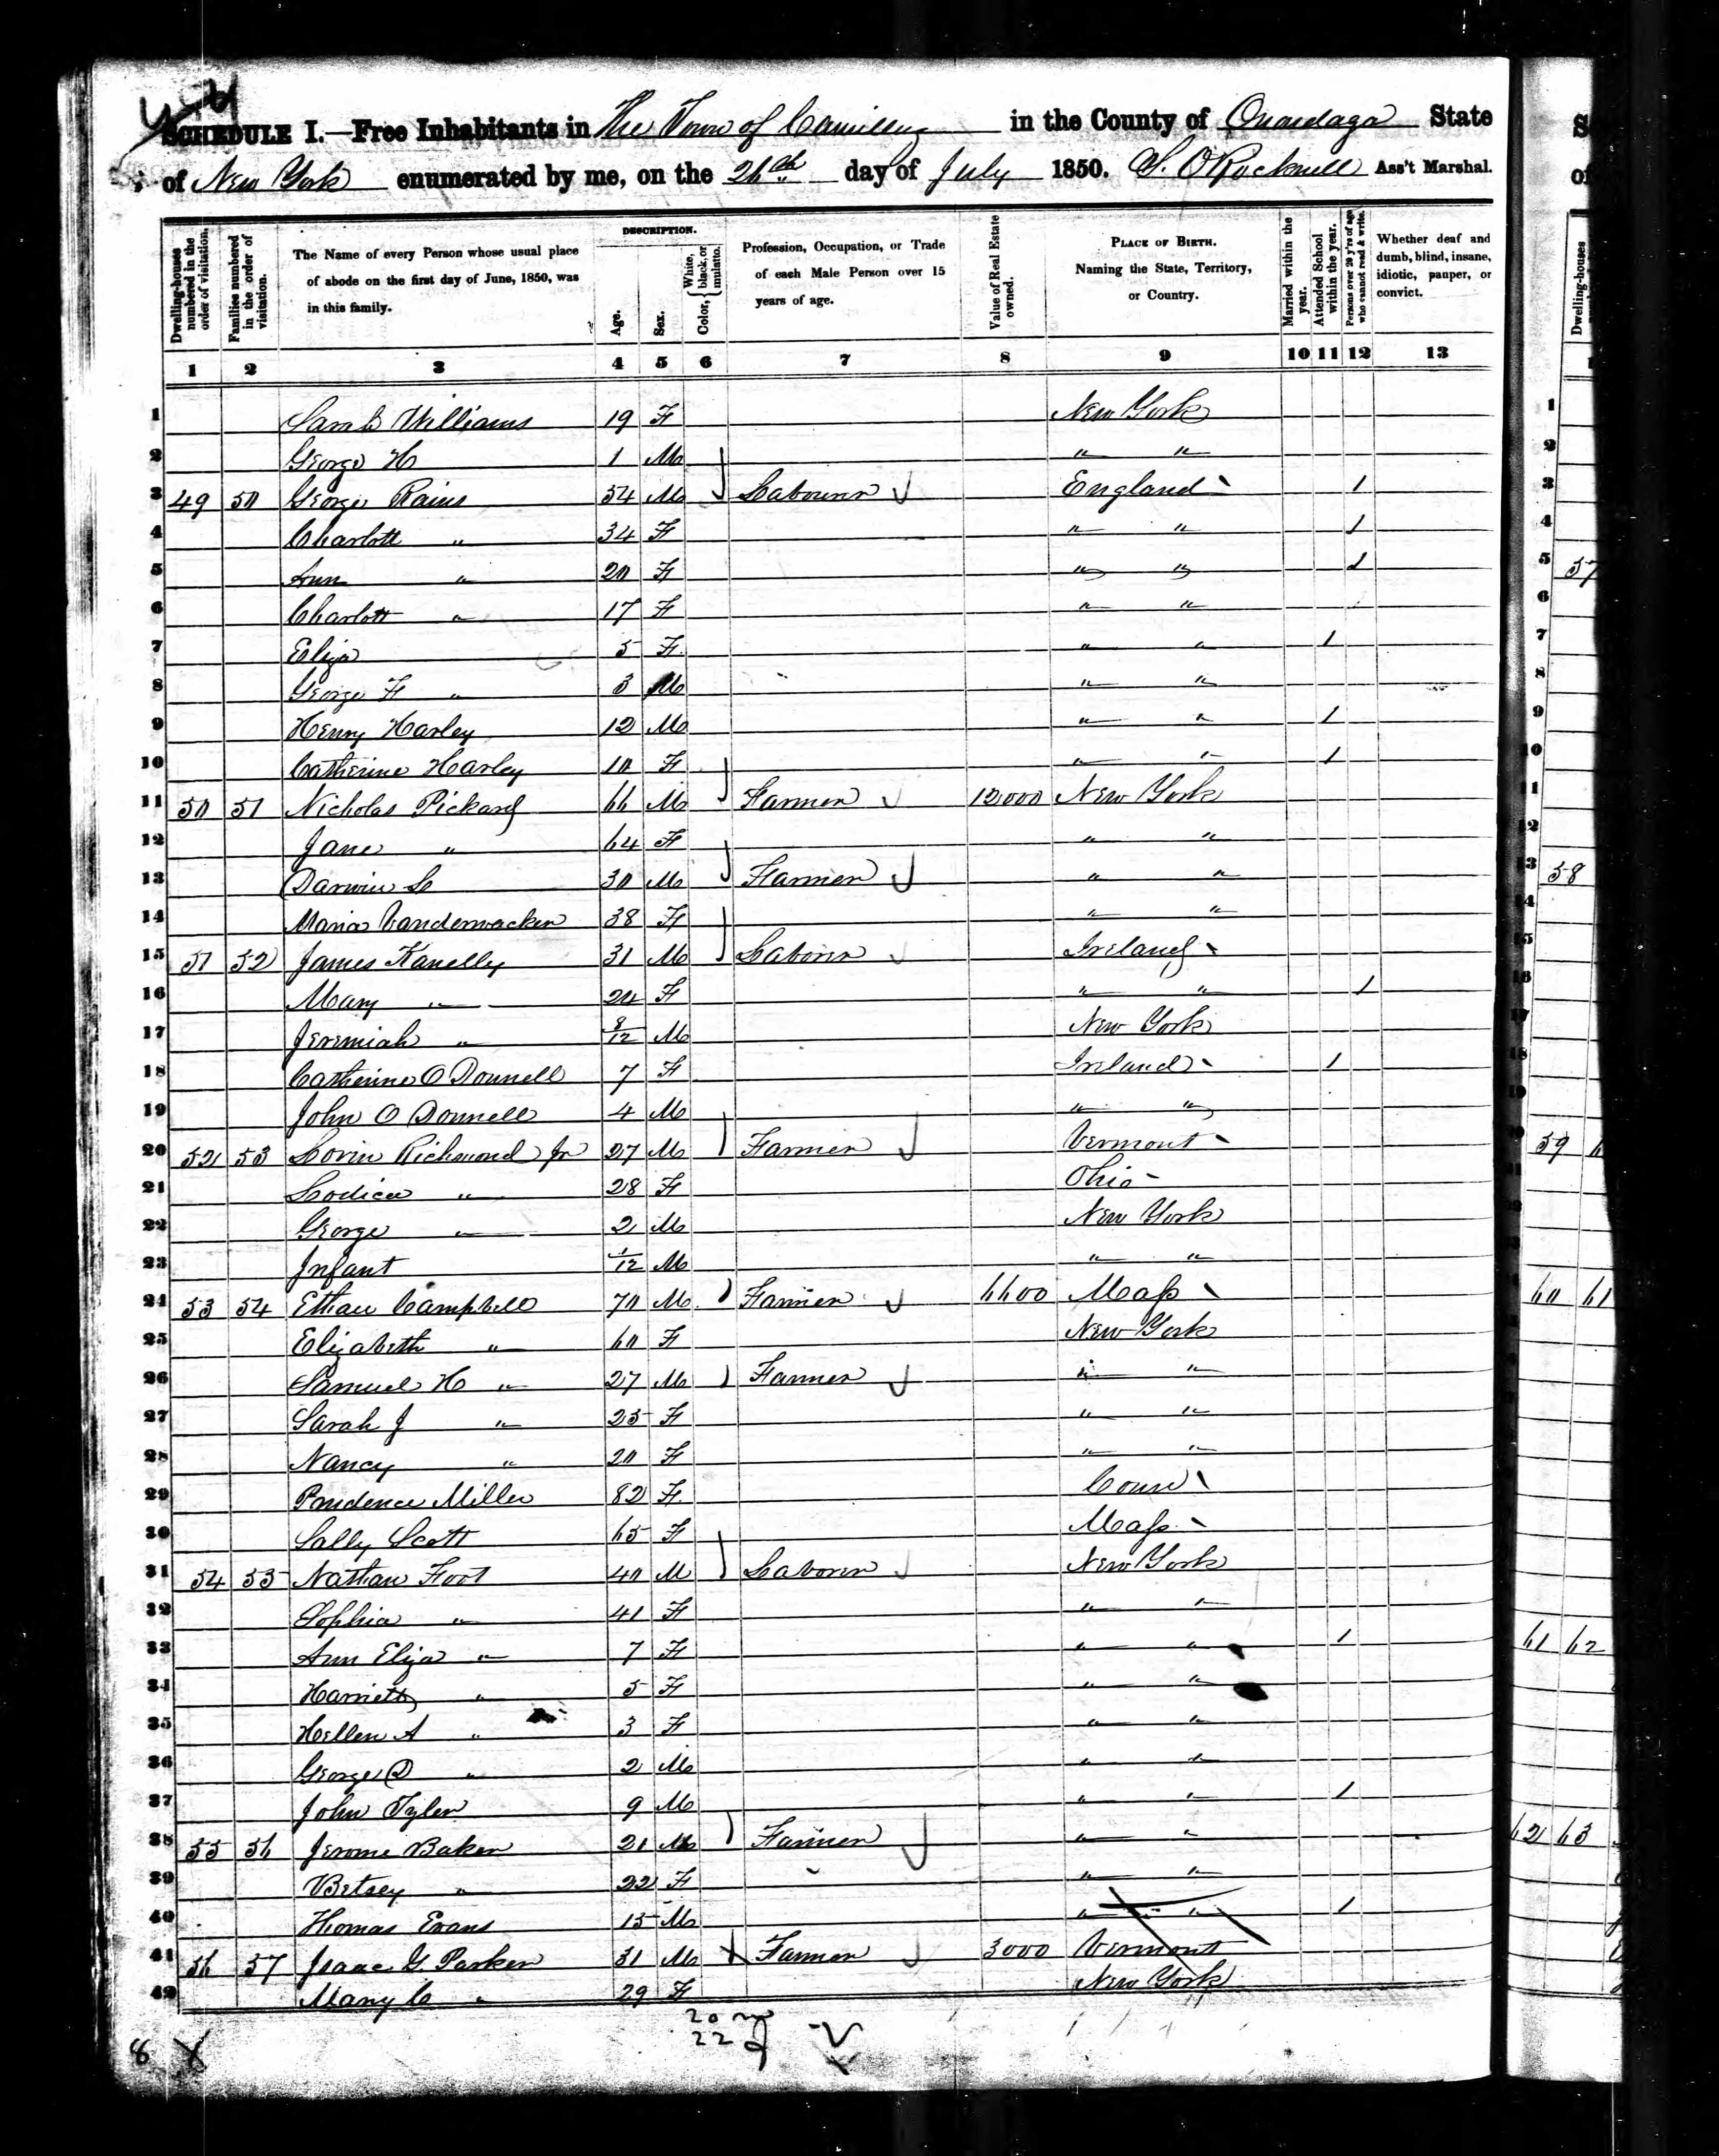 SCHEDULE I.—Free Inhabitants in The Town of Camillus in the County of Onondaga State
of New York enumerated by me, on the 26th day of July 1850. S. O Rockwell Ass't Marshal.
Dwelling-houses numbered in the order of visitation. Families numbered in the order of visitation. The Name of every Person whose usual place of abode on the first day of June, 1850, was in this family. DESCRIPTION. Age. Sex. Color, { White, black, or mulatto. Profession, Occupation, or Trade of each Male Person over 15 years of age. Value of Real Estate owned. PLACE OF BIRTH. Naming the State, Territory, or Country. Married within the year. Attended School within the year. Persons over 20 y'rs of age who cannot read & write. Whether deaf and dumb, blind, insane, idiotic, pauper, or convict.
1 2 3 4 5 6 7 8 9 10 11 12 13
1 Sarah Williams 19 F New York
2 George H 1 M " "
3 49 50 George Rains 54 M Labourer England 1
4 Charlott " 34 F " " 1
5 Ann " 20 F " " 1
6 Charlott " 17 F " "
7 Eliza 5 F " " 1
8 George F " 3 M " "
9 Henry Harley 12 M " " 1
10 Catherine Harley 10 F " " 1
11 50 51 Nicholas Pickard 66 M Farmer 12000 New York
12 Jane " 64 F " "
13 Darwin L 30 M Farmer " "
14 Maria Vanderwacker 38 F " "
15 51 52 James Kanelly 31 M Laborer Ireland
16 Mary " 24 F " " 1
17 Jeremiah " 8/12 M New York
18 Catherine O Donnell 7 F Ireland 1
19 John O Donnell 4 M " "
20 52 53 Lorin Richmond Jr 27 M Farmer Vermont
21 Lodica " 28 F Ohio
22 George " 2 M New York
23 Infant 1/12 M " "
24 53 54 Ethan Campbell 70 M Farmer 6600 Mass
25 Elizabeth " 60 F New York
26 Samuel H " 27 M Farmer " "
27 Sarah J " 25 F " "
28 Nancy " 20 F " "
29 Prudence Miller 82 F Conn
30 Sally Scott 65 F Mass
31 54 55 Nathan Foot 40 M Laborer New York
32 Sophia " 41 F " "
33 Ann Eliza " 7 F " " 1
34 Harriett " 5 F " "
35 Hellen A " 3 F " "
36 George D " 2 M " "
37 John Tyler 9 M " " 1
38 55 56 Jerome Baker 21 M Farmer " "
39 Betsey " 22 F " "
40 Thomas Evans 15 M " " 1
41 56 57 Isaac G. Parker 31 M Farmer 3000 Vermont
42 Mary C " 29 F New York
20 m
22 f
8